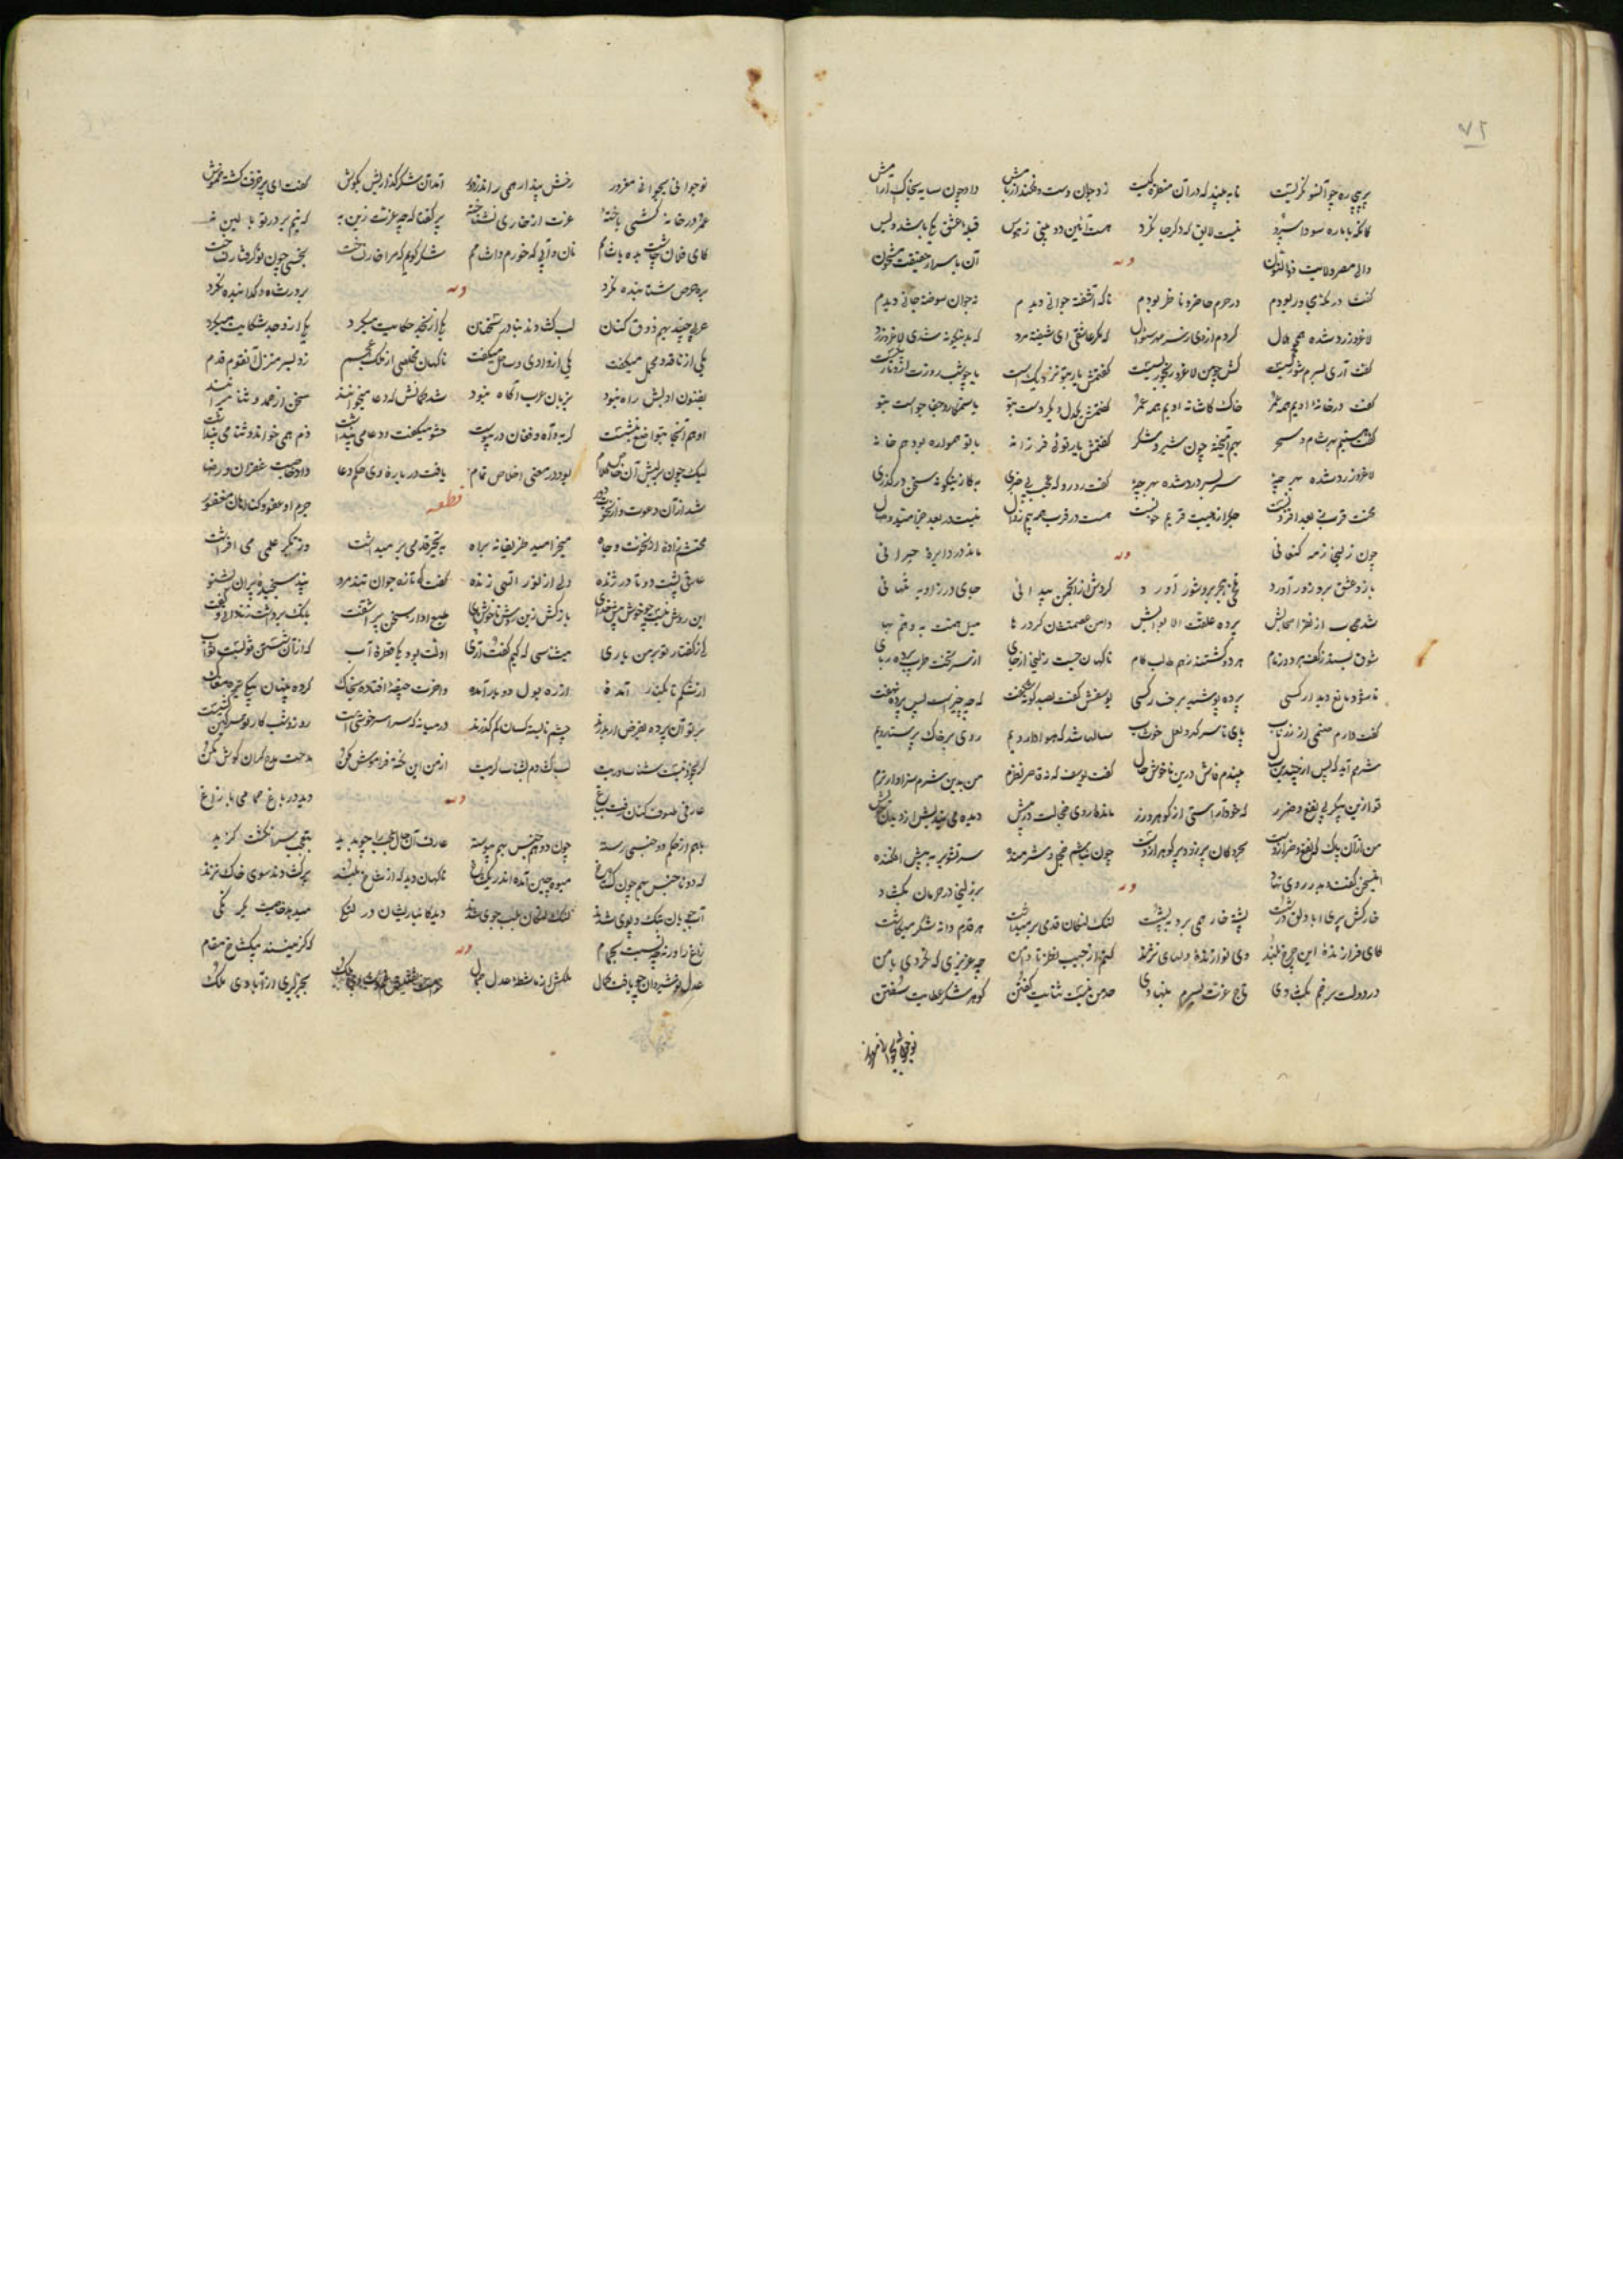 ۷۲
پیر بی ره چو آنسو نگریست تا به بیند که در آن منظره کیست زد جوان دست و فکند از بامش داد چون سایه بخاک آرامش
کانکه با ما ره سودا سپرد نیست لایق که دگر جا نگرد هست آئین دو بینی ز هوس قبله عشق یکی باشد و بس
والی مصر ولایت ذوالنون وله آن باسرار حقیقت مشحون
گفت در مکه مجاور بودم در حرم حاضر و ناظر بودم ناگه آشفته جوانی دیدم نه جوان سوخته جانی دیدم
لاغر و زرد شده همچو هلال کردم از وی ز سر مهر سؤال که مگر عاشقی ای شیفته مرد که بدینگونه شدی لاغر و زرد
گفت آری بسرم شور کسیست کش چو من لاغر و رنجور بسیست گفتمش یار بتو نزدیک است یا چو شب روزت ازو تاریکست
گفت در خانه اویم همه عمر خاک کاشانه اویم همه عمر گفتمش یکدل و یکروست بتو یا ستمکار و جفا جواست بتو
گفت هستیم بهر شام و سحر بهم آمیخته چون شیر و شکر گفتمش یار تو ای فرزانه با تو همواره بود همخانه
لاغر و زرد شده بهر چهٔ سر بسر درد شده بهر چهٔ گفت رو رو که عجب بی خبری به کزینگونه سخن در گذری
محنت قرب ز بعد افزونست جگر از هیبت قربم خونست هست در قرب همه بیم زوال نیست در بعد جز امید وصال
چون زلیخا ز مه کنعانی وله ماند در دایره حیرانی
بازوی عشق برو زور آورد غم هجر برو شور آورد کردش از انجمن پیدائی جای در زاویه تنهائی
شد حجاب از نظر اسبابش پرده علقت الابوابش دامن عصمتشان کرد رها میل همت به وهم بها
شوق بستد ز کف هر دو زمام هر دو گشتند ز هم طالب کام ناگهان جست زلیخا از جای از سر تخت طرب پرده ربای
تا شود مانع دیدار کسی پرده پوشید برخ کسی یوسفش گفت بصد گونه شگفت که چه چیز است پس پرده نهفت
گفت دارم صنمی از زر ناب پای تا سر گهر و لعل خوشاب سالها شد که هوادار ویم روی بر خاک پرستار ویم
شرمم آید که پس از چندین سال بیندم فاش درین ناخوش حال گفت یوسف که نه قاصر نظرم من بدین شرم سزاوارترم
تو ازین پیکر بی نفع و ضرر که خود آراستی از گوهر و زر مانده روی خجالت در پیش دیده می بندیش از دیدن خویش
من از آن پاک که نفع و ضرر ازوست بحر و کان پر زر و پر گوهر ازوست چون نباشم خجل و شرمنده سر تشویر به پیش افکنده
اینسخن گفت و بدر روی نهاد وله بر زلیخا در حرمان بگشاد
خارکش پیری با دلق درشت پشته خار همی برد به پشت لنگ لنگان قدمی بر میداشت هر قدم دانه شکر میکاشت
کای فرازنده این چرخ بلند وی نوازنده دلهای نژند کنم از جیب نظر تا دامن چه عزیزی که نکردی با من
در دولت برخم بگشادی تاج عزت بسرم بنهادی حد من نیست ثنایت گفتن گوهر شکر عطایت سفتن
نوجوانی بجوانی مغرور
نوجوانی بجوانی مغرور رخش پندار همی راند ز دور آمد آن شکر گذاریش بگوش گفت ای پیر خرف گشته خموش
عمر در خارکشی باخته عزت از خواری نشناخته پیر گفتا که چه عزت زین به که نیم بر در تو بالین نه
کای فلان چاشت بده یا شامم نان و آبی که خورم و آشامم شکر گویم که مرا خوار نساخت بخسی چون تو گرفتار نساخت
بره حرص شتابنده نکرد وله بر در شاه و گدا بنده نکرد
عربی چند بهم ذوق کنان لب گشادند بنادر سخنان یکی از نجد حکایت میکرد یکی از وجد شکایت میکرد
یکی از ناقه و محمل میگفت یکی از وادی و ساحل میگفت ناگهان مخلصی از ملک عجم زد بسر منزل آنقوم قدم
بفنون ادبش راه نبود بزبان عرب آگاه نبود شد گمانش که دعا میخوانند سخن از حمد و ثنا میرانند
او هم آنجا بتواضع بنشست گریه و آه و فغان در پیوست حشو میگفت و دعا می پنداشت ذم همی خواند و ثنا می پنداشت
لیک چون بر لبش آن خاص کلام بود در معنی اخلاص تمام یافت در باره وی حکم دعا داد خاصیت غفران و رضا
شد از آن دعوت قطعه جرم او عفو و گناهان مغفور
محتشم زاده از نخوت و جاه میخرامید ظریفانه براه به تبختر قدمی بر میداشت وز تکبر علمی می افراشت
عارفی پشت دو تا در ژنده دلی از نور الهی زنده گفت کای تازه جوان تند مرو پند سنجیده پیران بشنو
این روش نیست چو خوش پیش خدای بازکش زین روش ناخوش پای طبع او از سخن پیر آشفت بانک برداشت ز نادانی و گفت
کای ز گفتار تو بر من باری میشناسی که کیم گفت آری اولت بود یکی قطره آب که از آن شستن تو است ثواب
از ره بول دو بار آمده و آخرت جیفه افتاده بخاک کرده پنهان
بر تو آن پرده بفرض ار بدرند چشم نابسته کسان کم گذرند در میانه که سراسر خوشی است روز و شب کار تو سرگین کشی است
گر بخود نیست شناساوریت لب گشادم بشناساگریت از من این نکته فراموش مکن مدحت بیخردان گوش مکن
عارفی طوف کنان رفت بباغ وله دید در باغ همامی با زاغ
بهم از حکم دو جنسی رسته چون دو همجنس بهم پیوسته عارف آن حال عجب را چو بدید بتعجب سر انگشت گزید
که دو ناجنس بهم چون ناگهان دید که از شاخ بلند پر گشادند سوی خاک نژند
آب جویان بتک و پوی شدند لنگ لنگان بلب جوی شدند دید کانباریشان در لنگی میدهد خاصیت یکرنگی
زاغ را ورنه چه نسبت بحمام وله که گزینند بیکشاخ مقام
عدل نوشیروان چو یافت کمال ملکش از ماشطه عدل جمال بجز گیری از آبادی ملک